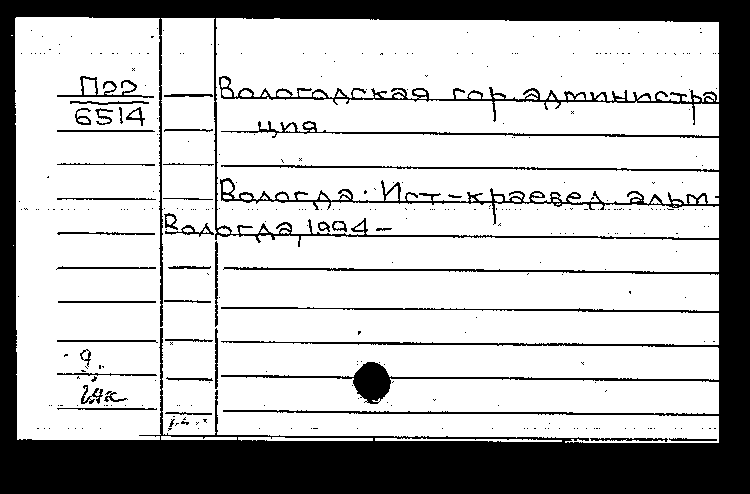 Пор
6514
Вологодская гор. администра
ция.
Вологда: Ист.-краевед. альм.
Вологда, 1994 –
9